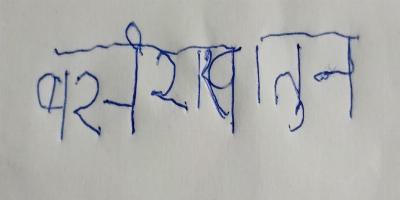 परने रखातुन